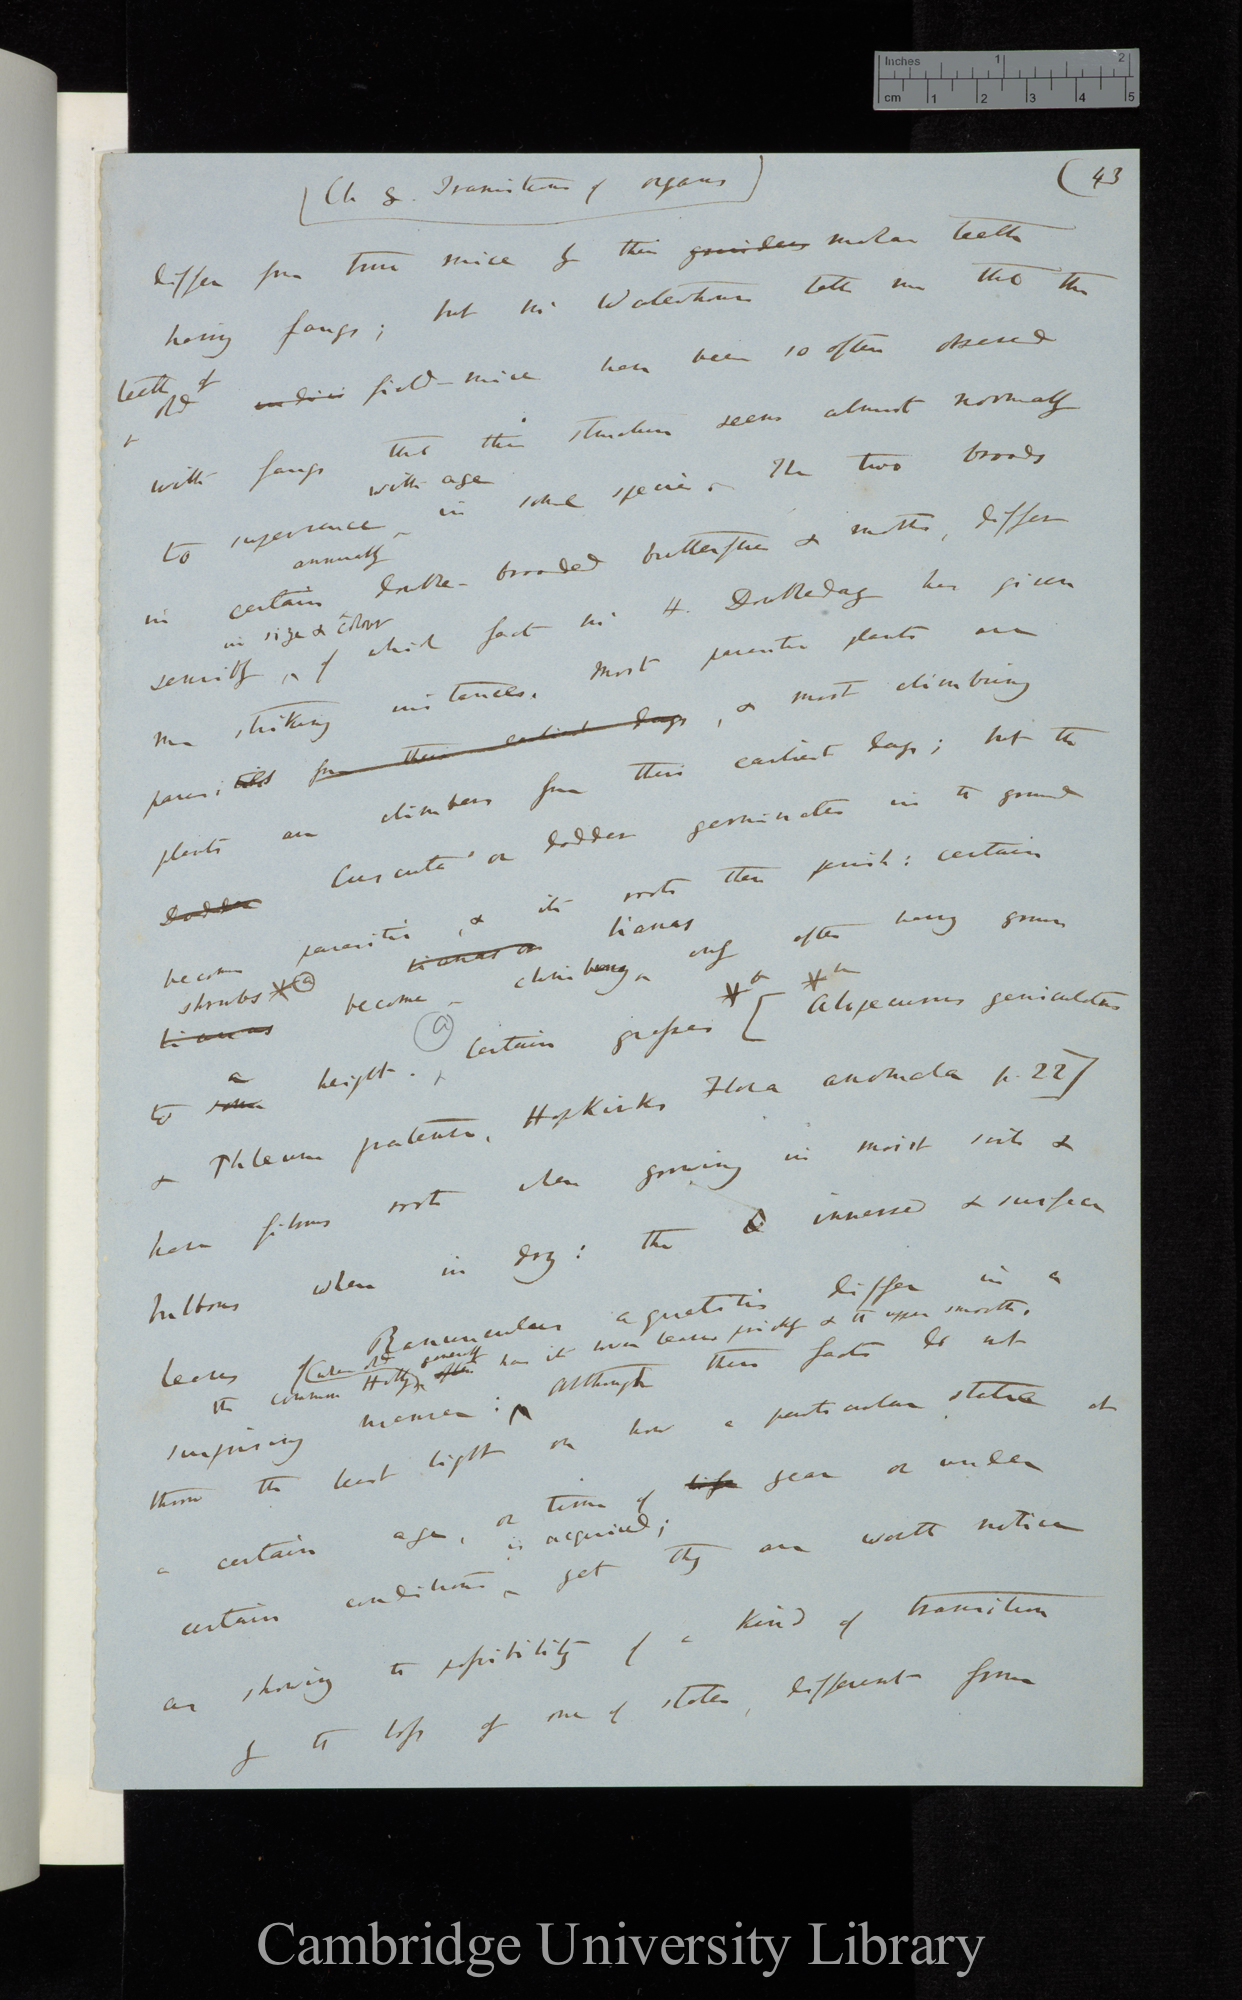 Inches 1 2
cm 1 2 3 4 5
(43
[Ch 8. Transitions of organs]
differ from true mice by their grinders molar teeth
having fangs; but Mr Waterhouse tells me that the
teeth of
old field-mice have been so often observed
with fangs that this structure seems almost normally
with age
to supervene in some species. The two broods
annually
in certain double-brooded butterflies & moths, differ
in size & colour
sensibly, of which fact Mr H. Doubleday has given
me striking instances. Most parasitic plants are
parasites from their earliest days, & most climbing
plants are climbers from their earliest days; but the
Dodder Cuscuta or dodder germinates in the ground
becomes parasitic, & its roots then perish: certain
shrubs (a) lianas or lianas
lianas become climbing, only after having grown
(a)
a
to some height. Certain grasses [Alopecurus geniculatus
& Phleum pratense, Hopkirks Flora anomala p. 22]
have fibrous roots when growing in moist soils &
bulbous when in dry: the immersed & surface
leaves of Ranunculus aquatilis differ in a
the common Holly (when old) often generally has its lower leaves prickly & the upper smooth.
surprising manner: Although these facts do not
throw the least light on how a particular state at
a certain age, or time of life year or under
is acquired;
certain conditions, yet they are worth notice
as showing the possibility of a kind of transition
by the loss of one of states, different from
Cambridge University Library